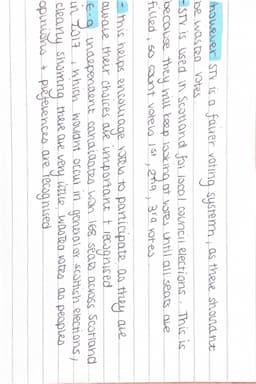 however STV is a fairer voting system, as there shouldnt
be wasted votes
- STV is used in Scotland for local council elections. This is
because they will keep looking at votes until all seats are
filled, so count voters 1st, 2nd, 3rd votes.
- this helps encourage voters to participate as they are
aware their choices are important + recognised
E.g independent candidates won 168 seats across Scotland
in 2017, which wouldnt occur in general or scottish elections,
clearly showing there are very little wasted votes as peoples
opinions + preferences are recognised